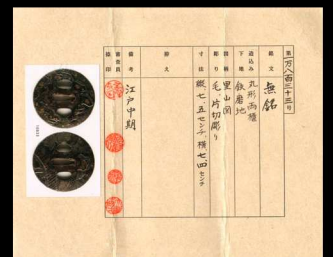 第一万八百三十三号
銘文 無銘
造込み 丸形両櫃
下地 鉄磨地
図柄 里山図
彫り 毛、片切彫り
寸法 縦七.五センチ、横七.四センチ
附言
備考 江戸中期
審査員